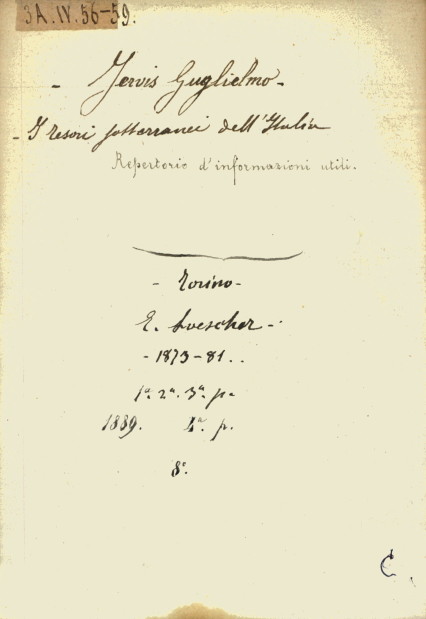 3A.IV.56-59.
- Jervis Guglielmo -
- I tesori sotterranei dell'Italia
Repertorio d'informazioni utili.
- Torino -
E. Loescher -
- 1873-81..
1ª. 2ª. 3ª. p.
1889. 4ª. p.
8º.
C